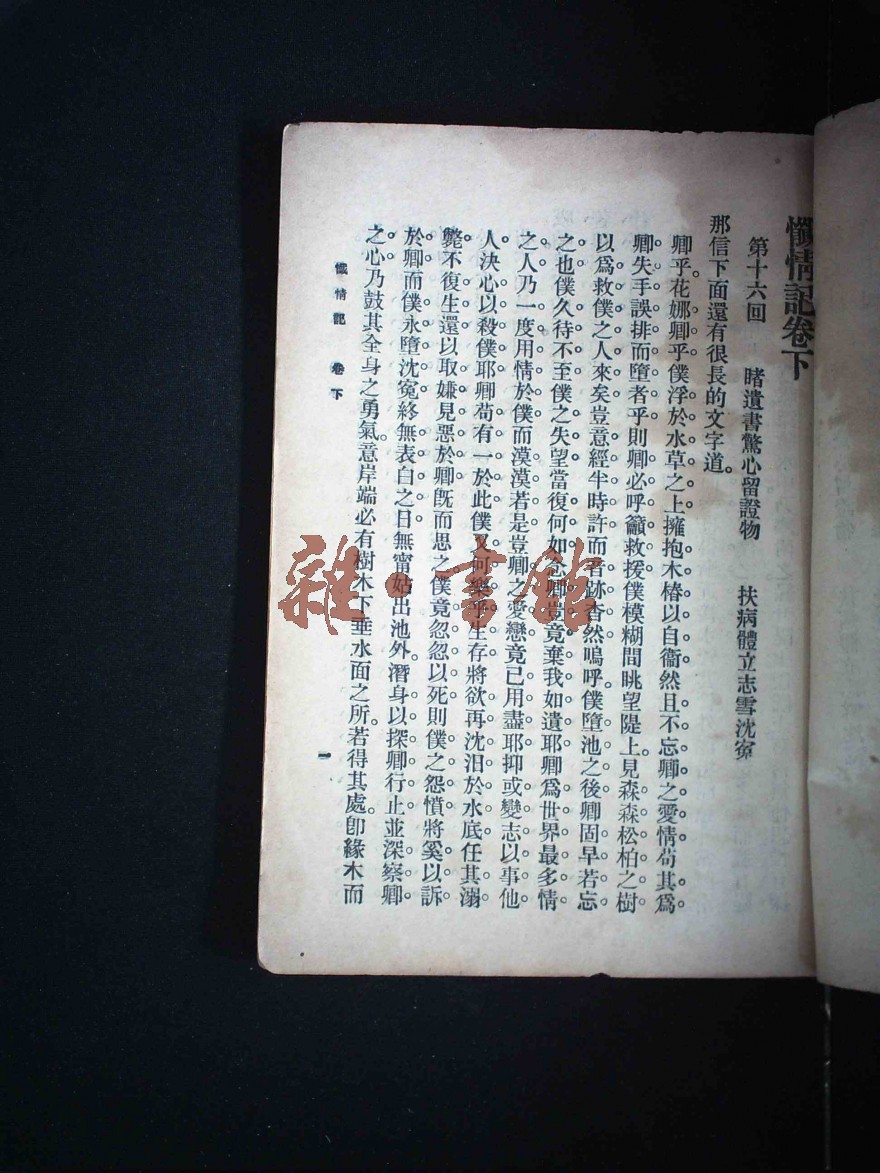 懺情記卷下
第十六回　睹遺書驚心留證物　扶病體立志雪沈寃
那信下面還有很長的文字道。
卿乎花娜卿乎僕浮於水草之上擁抱木樁以自衞然且不忘卿之愛情苟其爲
卿失手誤排而墮者乎則卿必呼籲救援僕模糊間眺望隄上見森森松柏之樹
以爲救僕之人來矣豈意經半時許而者跡杳然嗚呼僕墮池之後卿固早若忘
之也僕久待不至僕之失望當復何如今卿豈竟棄我如遺耶卿爲世界最多情
之人乃一度用情於僕而漠漠若是豈卿之愛戀竟已用盡耶抑或變志以事他
人決心以殺僕耶卿苟有一於此僕又何樂乎生存將欲再沈汨於水底任其溺
斃不復生還以取嫌見惡於卿旣而思之僕竟忽忽以死則僕之怨憤將奚以訴
於卿而僕永墮沈寃終無表白之日無甯姑出池外潛身以探卿行止並深察卿
之心乃鼓其全身之勇氣意岸端必有樹木下垂水面之所若得其處卽緣木而
懺情記　卷下
一
雜·書館